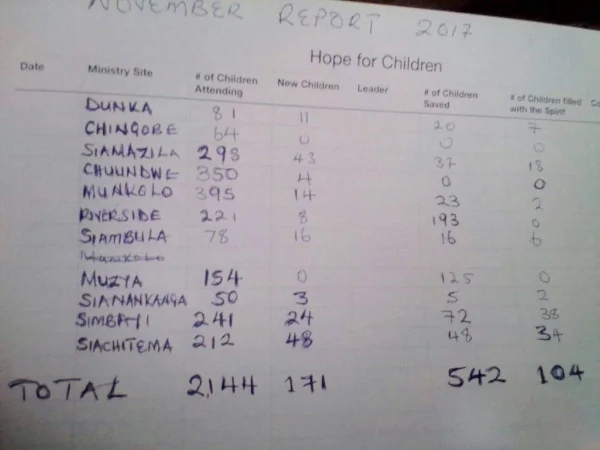 NOVEMBER REPORT 2017
Hope for Children
Date Ministry Site # of Children Attending New Children Leader # of Children Saved # of Children filled with the Spirit Co
DUNKA 81 11 20 7
CHINGOBE 64 0 0 0
SIAMAZILA 298 43 37 18
CHUUNDWE 350 4 0 0
MUNKOLO 395 14 23 2
RIVERSIDE 221 8 193 0
SIAMBULA 78 16 16 6
MUZYA 154 0 125 0
SIANANKANGA 50 3 5 2
SIMBAYI 241 24 72 38
SIACHITEMA 212 48 48 34
TOTAL 2,144 171 542 104